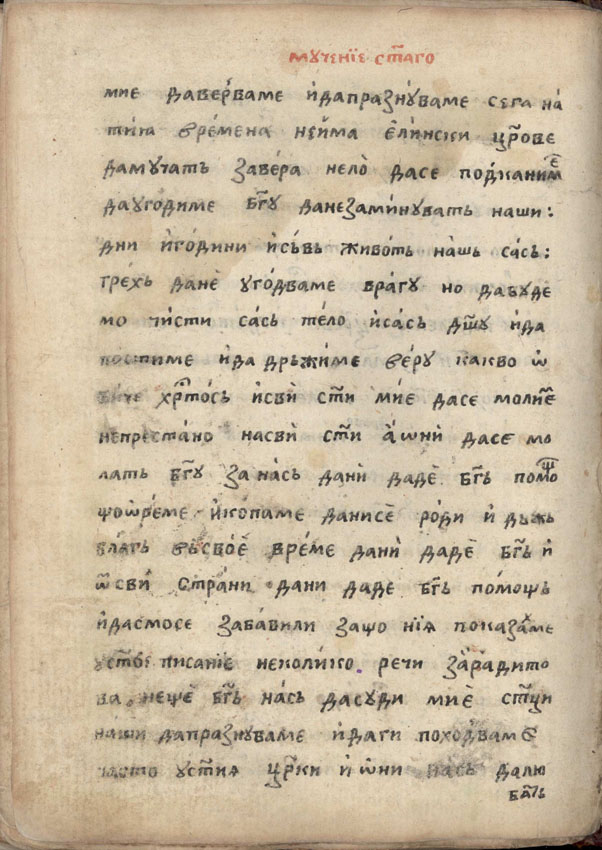 мꙋченїе ст҃аго
мие даверꙋваме идапразнꙋваме сега на
тиѧ времена нейма елински цр҃ове
дамꙋчать завера нело дасе подканиме
даꙋгодиме бг҃ꙋ данезаминꙋвать наши:
дни игодини исьвь животь нашь сась:
грехь дане ꙋгодваме врагꙋ но дабꙋде
мо чисти сась тело исась дш҃ꙋ ида
постиме ида дрьжиме верꙋ какво ѡ
хрс҃тось исви ст҃и мие дасе молиме
непрестано насви ст҃и аѡни дасе мо
лать бг҃ꙋ за нась дани даде бг҃ь помощ
ѱоѡреме икопаме данисе роди и дьжь
благь вьсвое време дани даде бг҃ь и
ѿсви страни дани даде бг҃ь помощь
идасмосе забавили защо нїѧ показахме
писание неколико речи зарадито
ва неще бг҃ь нась дасꙋди мие ст҃ци
наши дапразнꙋваме идаги походваме
често ꙋстиѧ цр҃кви и ѡни нась далю
бать